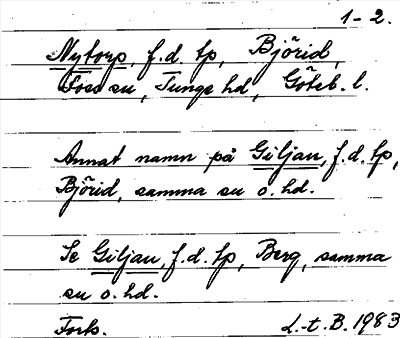 1-2.
Nytorp, f.d. tp, Björid,
Foss sn, Tunge hd, Göteb. l.
Annat namn på Giljan, f.d. tp,
Björid, samma sn o. hd.
Se Giljan, f.d. tp, Berg, samma
sn o. hd.
Forts. L.-t. B. 1983